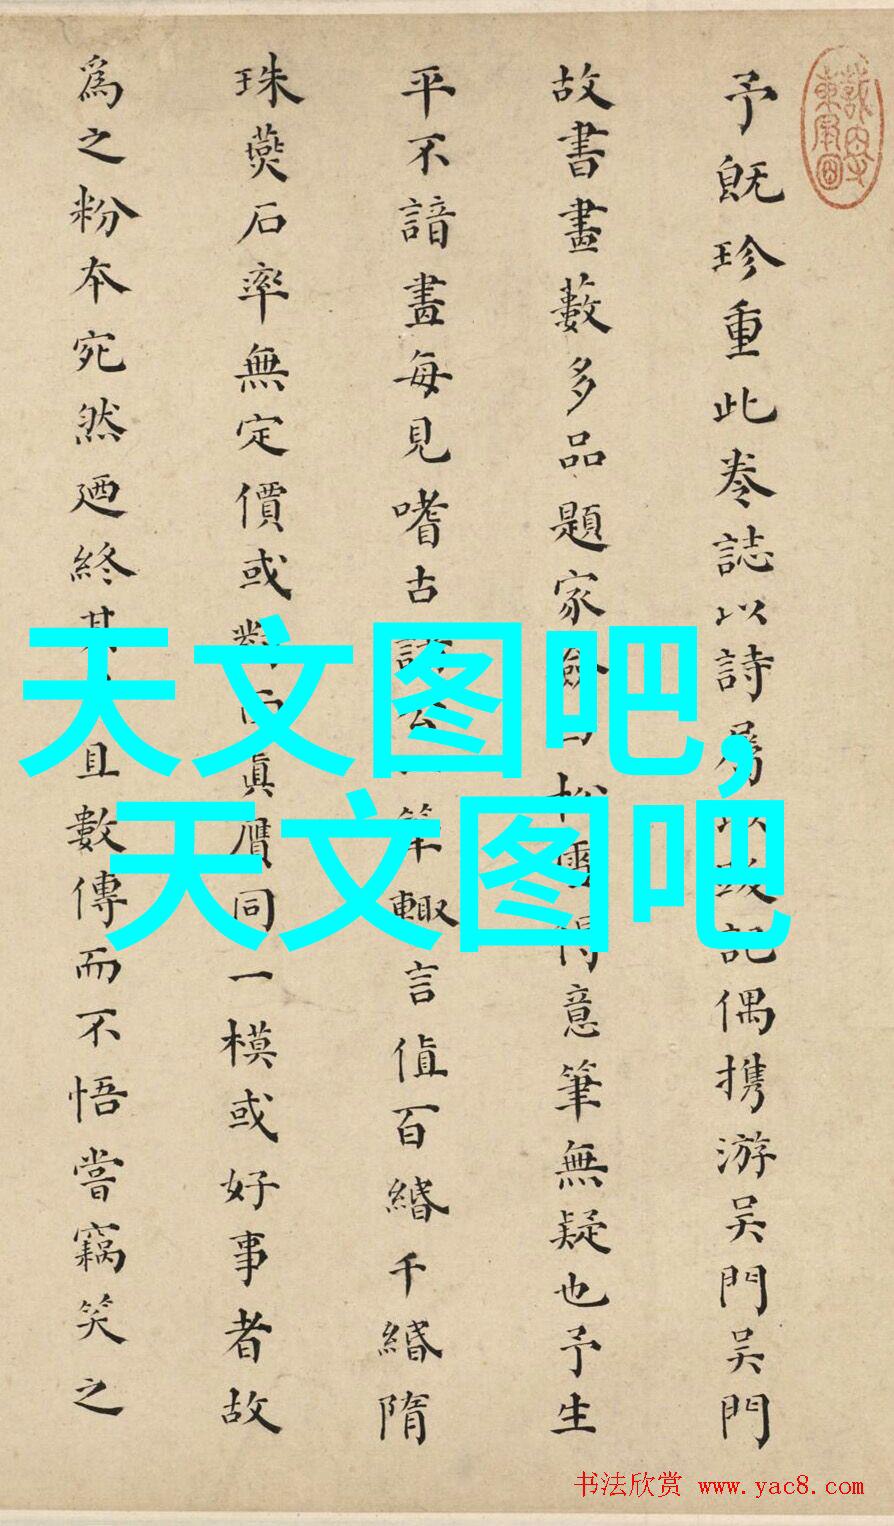 予既珍重此卷誌以詩記偶携游吴門吴門
故書畫藪多品題家僉曰松雪得意筆無疑也予生
平不諳畫每見嗜古諸公筆輙言值百緡千緡隋
珠燕石率無定價或對面真贋同一模或好事者故
為之粉本宛然廼終其且數傳而不悟嘗竊笑之
天文图吧,
天文图吧
书法欣赏 www.yac8.com